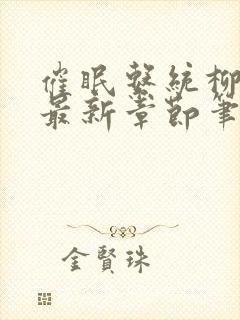 催眠繫統柳
最新章節筆
金賢珠